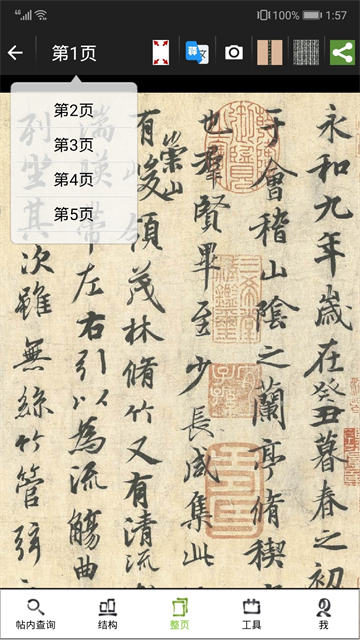 100% 1:57
第1页
译 文
第2页
第3页
第4页
第5页
永和九年歲在癸丑暮春之初
于會稽山陰之蘭亭脩稧
也羣賢畢至少長咸集此
有崇山峻領茂林脩竹又有清流
湍暎帶左右引以為流觴曲
列坐其次雖無絲竹管弦
帖内查询
结构
整页
工具
我